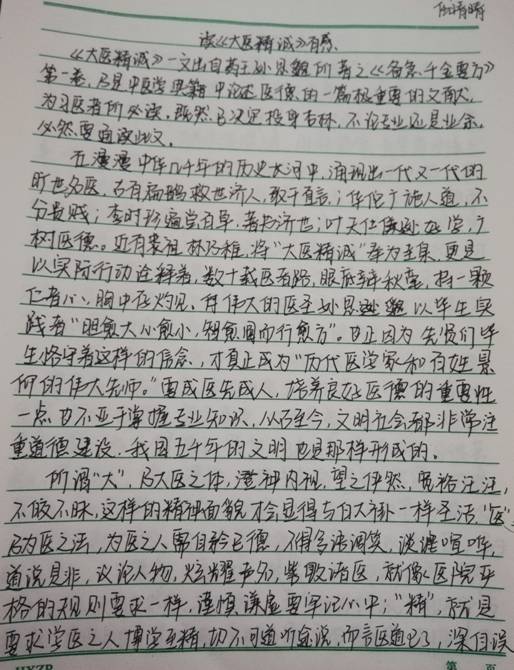 读《大医精诚》有感
《大医精诚》一文出自药王孙思邈所著之《备急千金要方》
第一卷,乃是中医学典籍中论述医德的一篇极重要的文献,
为习医者所必读。既然已决定投身杏林,不论专业还是业余,
必然要通读此文。
在漫漫中华几千年的历史大河中,涌现出一代又一代的
旷世名医,古有扁鹊救世济人,敢于直言;华佗广施人道,不
分贵贱;李时珍遍尝百草,著书济世;叶天仕好学,广
树医德。近有裘祖林乃租,将“大医精诚”奉为圭臬,更是
以实际行动诠释着,数十载医者路,眼底辩秋毫,持一颗
仁者心,胸中存灼见,伟大的医圣孙思邈以毕生实
践着“胆愈大心愈小,智愈圆而行愈方”。也正因为先贤们毕
生恪守着这样的信念,才真正成为“历代医学家和百姓景
仰的伟大先师。”要成医先成人,培养良好医德的重要性
一点也不亚于掌握专业知识,从古至今,文明社会都非常注
重道德建设,我国五千年的文明也是那样形成的。
所谓“大”,乃大医之体,澄神内视,望之俨然,宽裕汪汪,
不皎不昧,这样的精神面貌才会显得与白大褂一样圣洁,“医”
乃为医之法,为医之人需自矜己德,不得多语调笑,谈谑喧哗,
道说是非,议论人物,炫耀声名,訾毁诸医,就像医院严
格的规则要求一样,谨慎谦虚要牢记心中;“精”,就是
要求学医之人博学至精,切不可道听途说,而言医道已了,深自误
HXZP
第 页